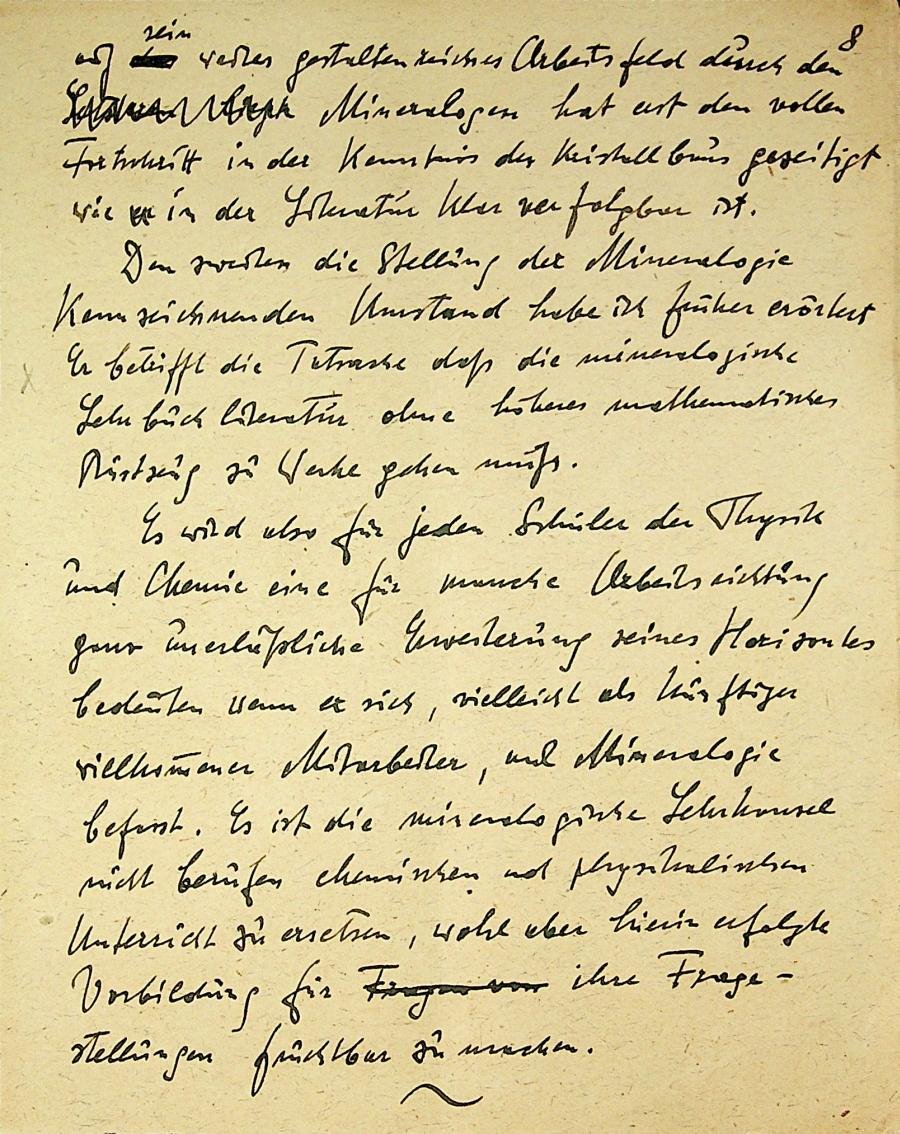 8
sein
auf weites gestaltenreiches Arbeitsfeld durch den
Mineralogen hat erst den vollen
Fortschritt in der Kenntnis des Kristallbaus gezeitigt
wie er in der Literatur klar verfolgbar ist.
Den zweiten die Stellung der Mineralogie
Kennzeichnenden Umstand habe ich früher erörtert
Er betrifft die Tatsache daß die mineralogische
Lehrbuchliteratur ohne höheres mathematisches
Rüstzeug zu Werke gehen muß.
Es wird also für jeden Schüler der Physik
und Chemie eine für manche Arbeitsrichtung
ganz unerläßliche Erweiterung seines Horizontes
bedeuten wenn er sich, vielleicht als künftiger
willkommener Mitarbeiter, mit Mineralogie
befasst. Es ist die mineralogische Lehrkanzel
nicht berufen chemischen und physikalischen
Unterricht zu ersetzen, wohl aber hierin erfolgte
Vorbildung für Fragen von ihre Frage-
stellungen fruchtbar zu machen.